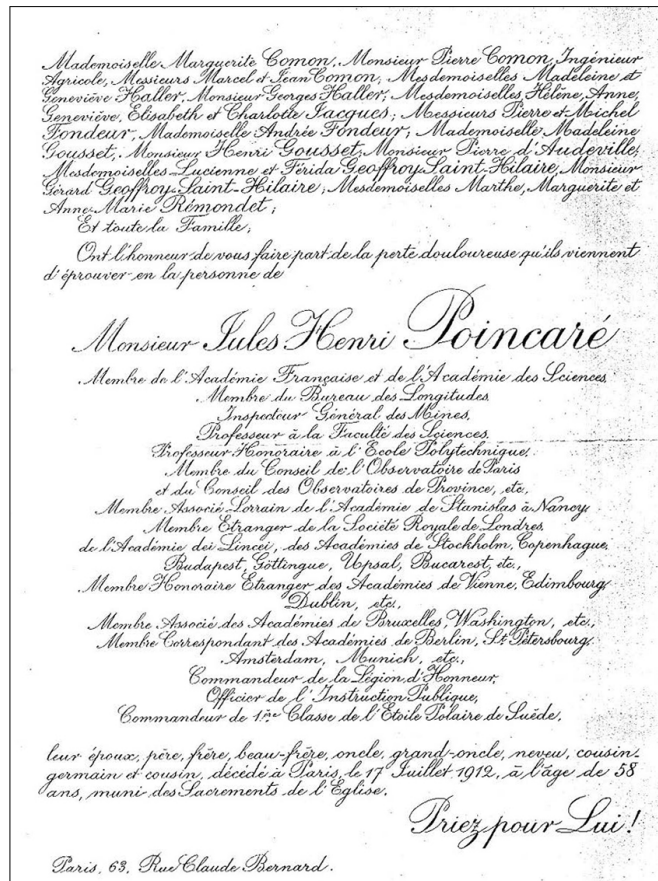 Mademoiselle Marguerite Comon, Monsieur Pierre Comon, Ingénieur
Agricole, Messieurs Marcel et Jean Comon; Mesdemoiselles Madeleine et
Geneviève Haller, Monsieur Georges Haller; Mesdemoiselles Hélène, Anne,
Geneviève, Elisabeth et Charlotte Jacques; Messieurs Pierre et Michel
Fondeur, Mademoiselle Andrée Fondeur; Mademoiselle Madeleine
Gousset, Monsieur Henri Gousset; Monsieur Pierre d'Audeville;
Mesdemoiselles Lucienne et Férida Geoffroy-Saint-Hilaire, Monsieur
Gérard Geoffroy-Saint-Hilaire; Mesdemoiselles Marthe, Marguerite et
Anne-Marie Rémondet;
Et toute la Famille;
Ont l'honneur de vous faire part de la perte douloureuse qu'ils viennent
d'éprouver en la personne de
Monsieur Jules Henri Poincaré
Membre de l'Académie Française et de l'Académie des Sciences,
Membre du Bureau des Longitudes,
Inspecteur Général des Mines,
Professeur à la Faculté des Sciences,
Professeur Honoraire à l'Ecole Polytechnique,
Membre du Conseil de l'Observatoire de Paris
et du Conseil des Observatoires de Province, etc,
Membre Associé Lorrain de l'Académie de Stanislas à Nancy,
Membre Etranger de la Société Royale de Londres,
de l'Académie dei Lincei, des Académies de Stockholm, Copenhague,
Budapest, Göttingue, Upsal, Bucarest, etc.,
Membre Honoraire Etranger des Académies de Vienne, Edimbourg,
Dublin, etc,
Membre Associé des Académies de Bruxelles, Washington, etc,
Membre Correspondant des Académies de Berlin, St Pétersbourg,
Amsterdam, Munich, etc.,
Commandeur de la Légion d'Honneur,
Officier de l'Instruction Publique,
Commandeur de 1ère Classe de l'Etoile Polaire de Suède,
leur époux, père, frère, beau-frère, oncle, grand-oncle, neveu, cousin-
germain et cousin, décédé à Paris, le 17 Juillet 1912, à l'âge de 58
ans, muni des Sacrements de l'Eglise.
Priez pour Lui!
Paris, 63, Rue Claude Bernard.